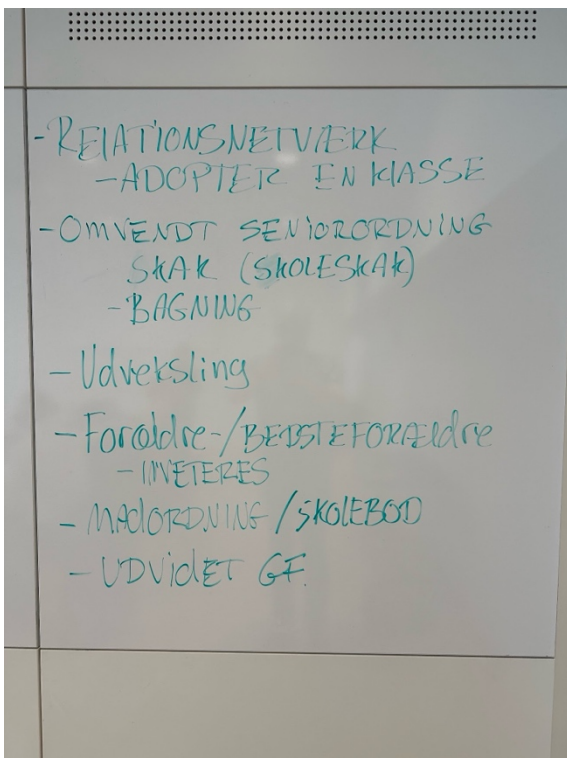 - RELATIONSNETVÆRK
- ADOPTER EN KLASSE
- OMVENDT SENIORORDNING
SKAK (SKOLESKAK)
- BAGNING
- Udveksling
- Forældre-/BEDSTEFORÆLdre
- INVETERES
- MADORDNING/SKOLEBOD
- UDVIDET GF.